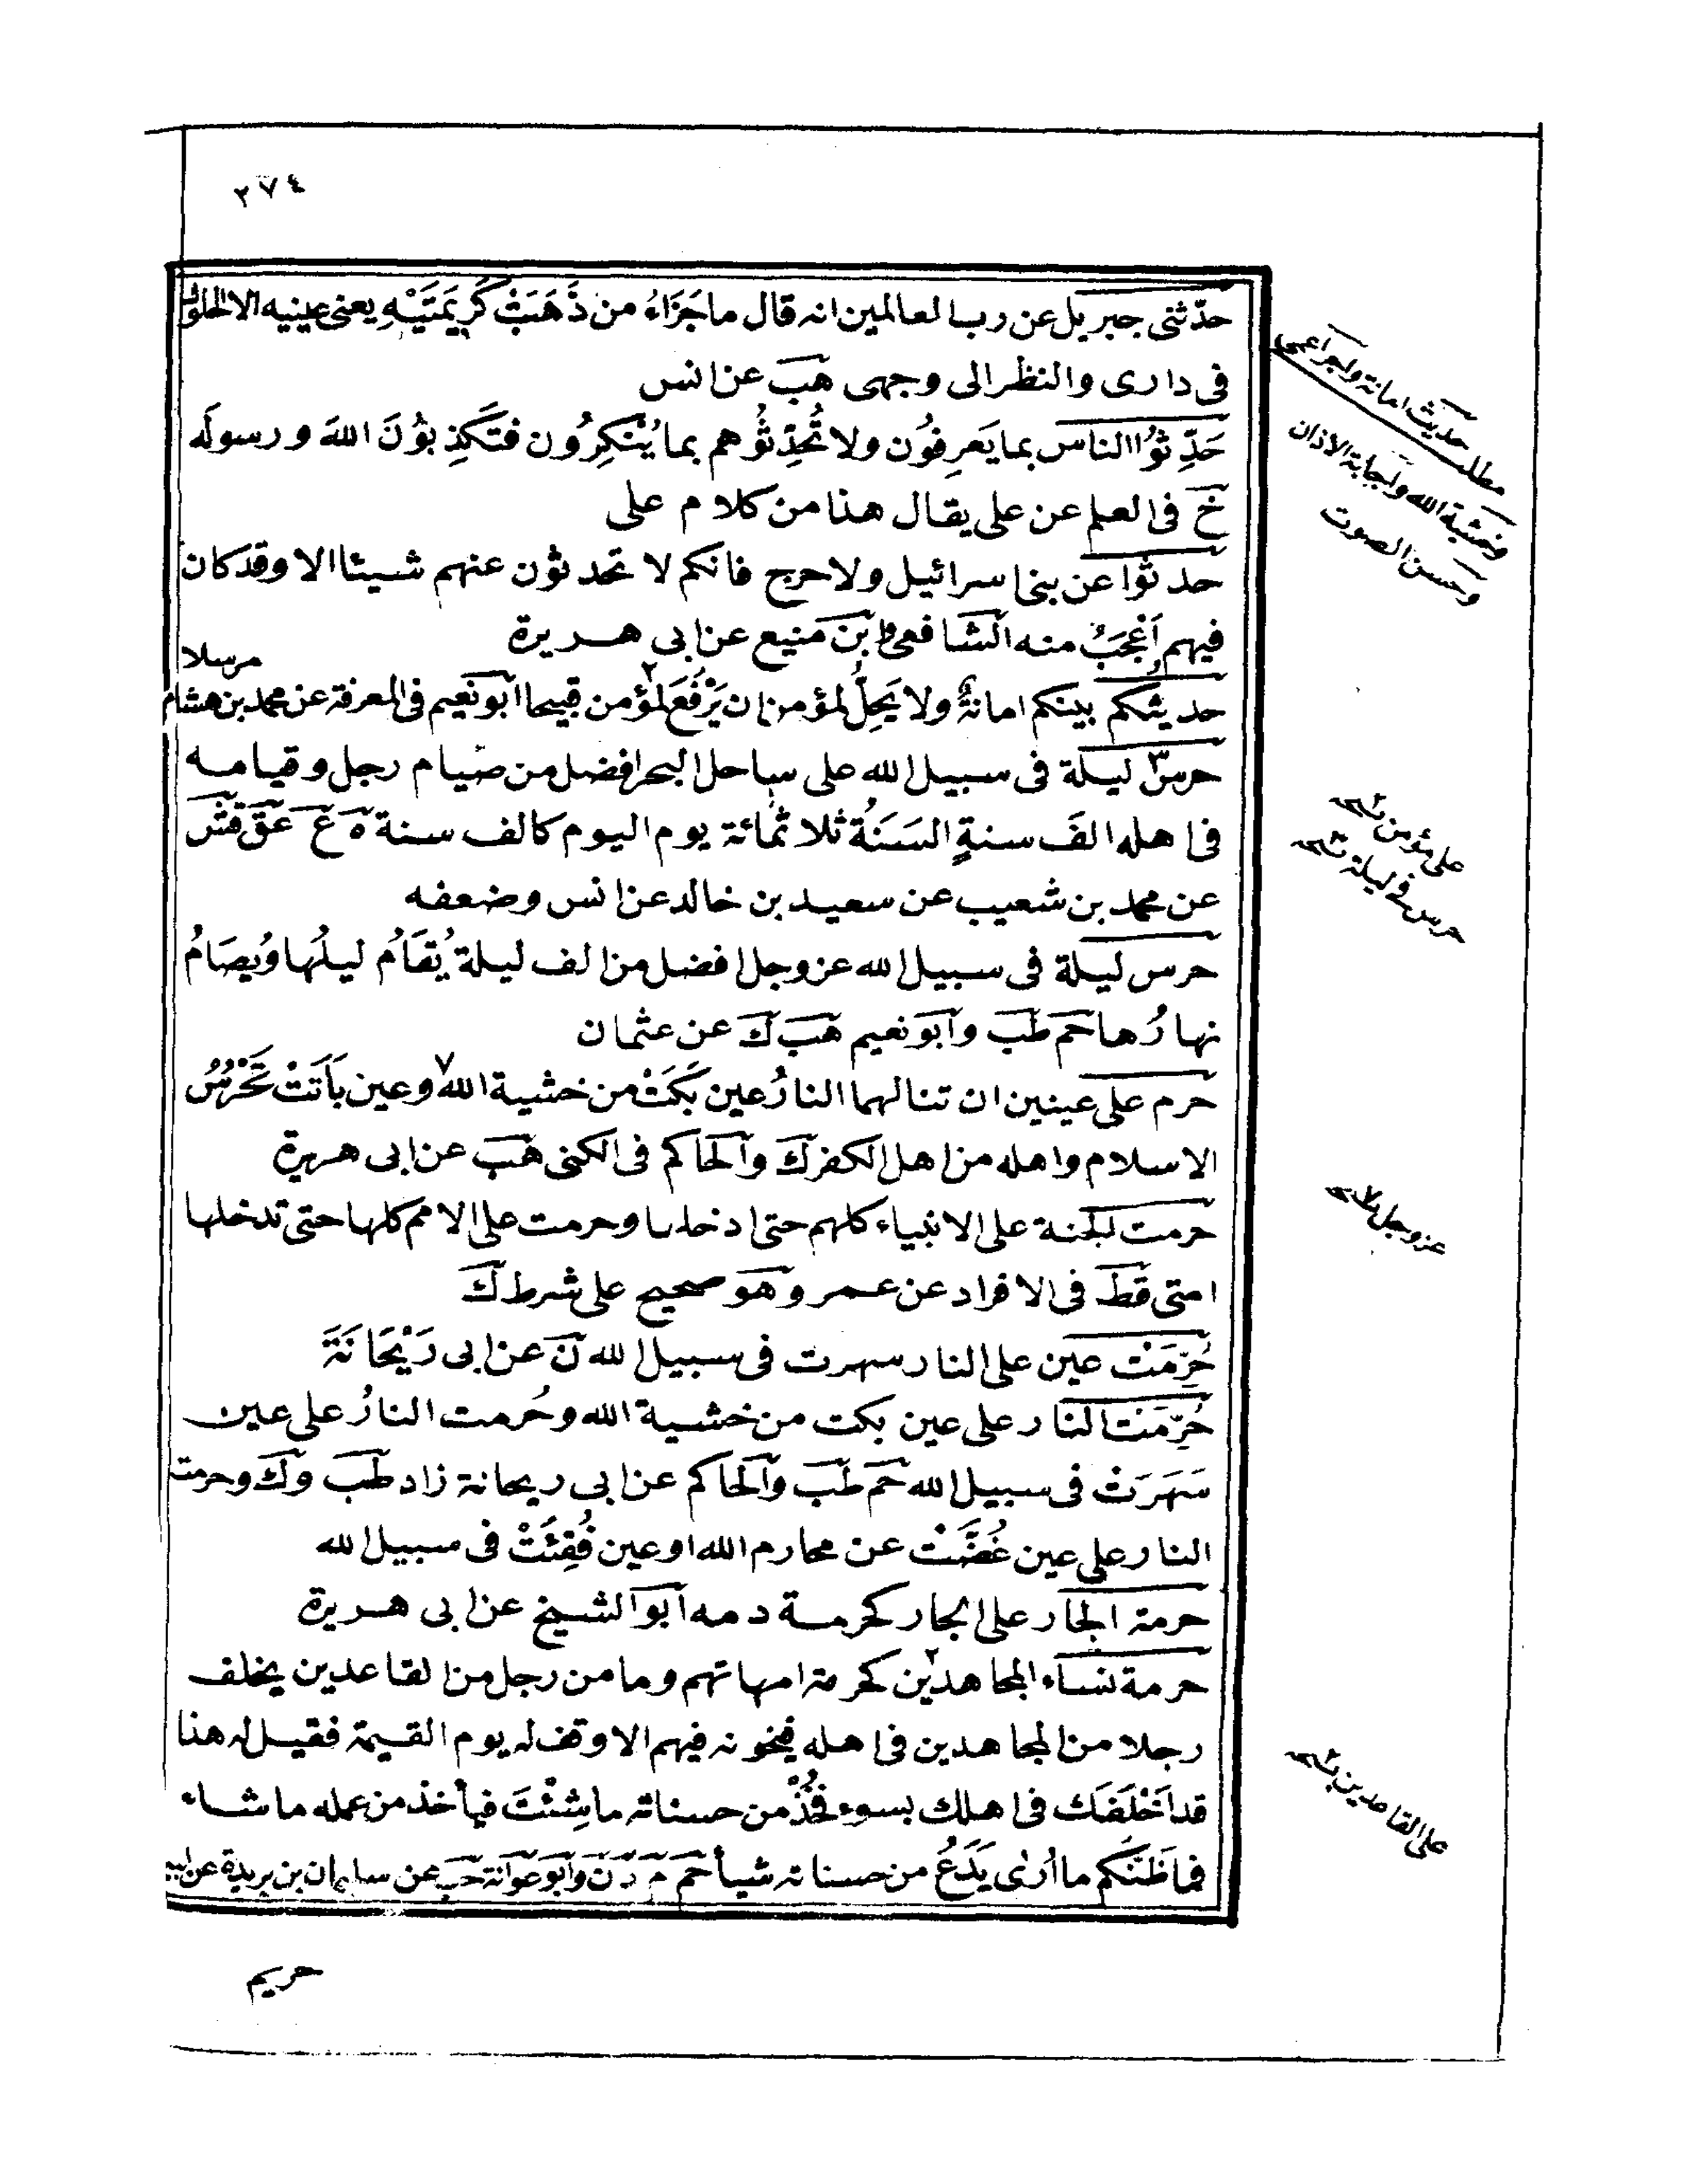 ٢٧٤
حدّثنى جبريل عن رب العالمين انه قال ما جَزَاءُ من ذَهَبَتْ كَرِيمَتَيْهِ يعنى عينيه الا الخلود
فى دارى والنظر الى وجهى هب عن انس
حَدِّثُوا الناس بما يَعرِفُون ولا تُحَدِّثُوهم بما يُنْكِرُون فتَكَذِبُونَ اللهَ ورسولَه
خ فى العلم عن على يقال هذا من كلام على
حدثوا عن بنى اسرائيل ولا حرج فانكم لا تحدثون عنهم شيئا الا وقد كان
فيهم اَعْجَبُ منه الشافعى وابن منيع عن ابى هريرة
مرسلا
حديثكم بينكم امانةٌ ولا يَحِلُّ لمؤمن ان يَرْفَعَ لمؤمن قبيحا ابو نعيم فى المعرفة عن محمد بن هشام
حرس ليلة فى سبيل الله على ساحل البحر افضل من صيام رجل وقيامه
فى اهله الفَ سنةٍ السَنَةُ ثلاثمائة يوم اليوم كالف سنة ه ع عق
عن محمد بن شعيب عن سعيد بن خالد عن انس وضعفه
حرس ليلة فى سبيل الله عز وجل افضل من الف ليلة يُقَامُ ليلُها ويُصَامُ
نهارُها حم طب وابو نعيم هب ك عن عثمان
حرم على عينين ان تنالهما النارُ عين بَكَتْ من خشية الله ٧ وعين بَاتَتْ تَحْرُسُ
الاسلام واهله من اهل الكفر ك والحاكم فى الكنى هب عن ابى هريرة
حرمت الجنة على الانبياء كلهم حتى ادخلها وحرمت على الامم كلها حتى تدخلها
امتى قط فى الافراد عن عمر وهو صحيح على شرط ك
حُرِّمَتْ عين على النار سهرت فى سبيل الله ن عن ابى رَيْحَانَةَ
حُرِّمَتْ النار على عين بكت من خشية الله وحُرمت النارُ على عين
سَهَرَتْ فى سبيل الله حم طب والحاكم عن ابى ريحانة زاد طب وك وحرمت
النار على عين غُضَّتْ عن محارم الله او عين فُقِئَتْ فى سبيل الله
حرمة الجار على الجار كحرمة دمه ابو الشيخ عن ابى هريرة
حرمة نساء المجاهدين ٢ كحرمة امهاتهم وما من رجل من القاعدين يخلف
رجلا من المجاهدين فى اهله فيخونه فيهم الا وقف له يوم القيمة فقيل له هذا
قد اَخْلَفَكَ فى اهلك بسوء فَخُذْ من حسناته ما شِئْتَ فيأخذ من عمله ما شاء
فما ظَنُّكم ما اُرٰى يَدَعُ من حسناته شيأ حم م د ن وابو عوانة حب عن سليمان بن بريدة عن ابيه
مطلب حديث امانة واجر اعمى
وخشية الله واجابة الاذان
وحسن الصوت
على مؤمن
حرس فى ليلة
عز وجل
على القاعدين
حريم